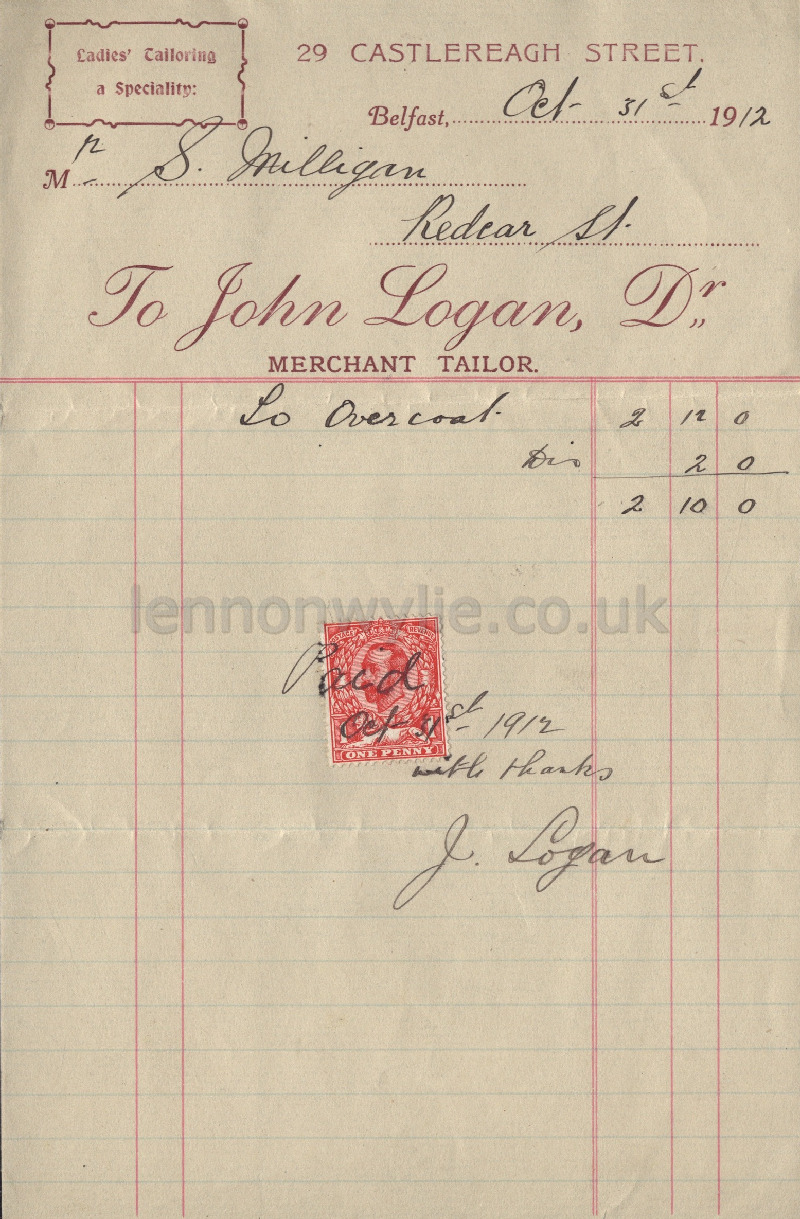 Ladies' Tailoring
a Speciality:
29 CASTLEREAGH STREET.
Belfast, Oct 31st 1912
Mr S. Milligan
Redcar St.
To John Logan, Dr.,
MERCHANT TAILOR.
To Overcoat 2 12 0
Dis 2 0
2 10 0
lennonwylie.co.uk
POSTAGE REVENUE
Paid
Oct 31st 1912
ONE PENNY
with thanks
J. Logan